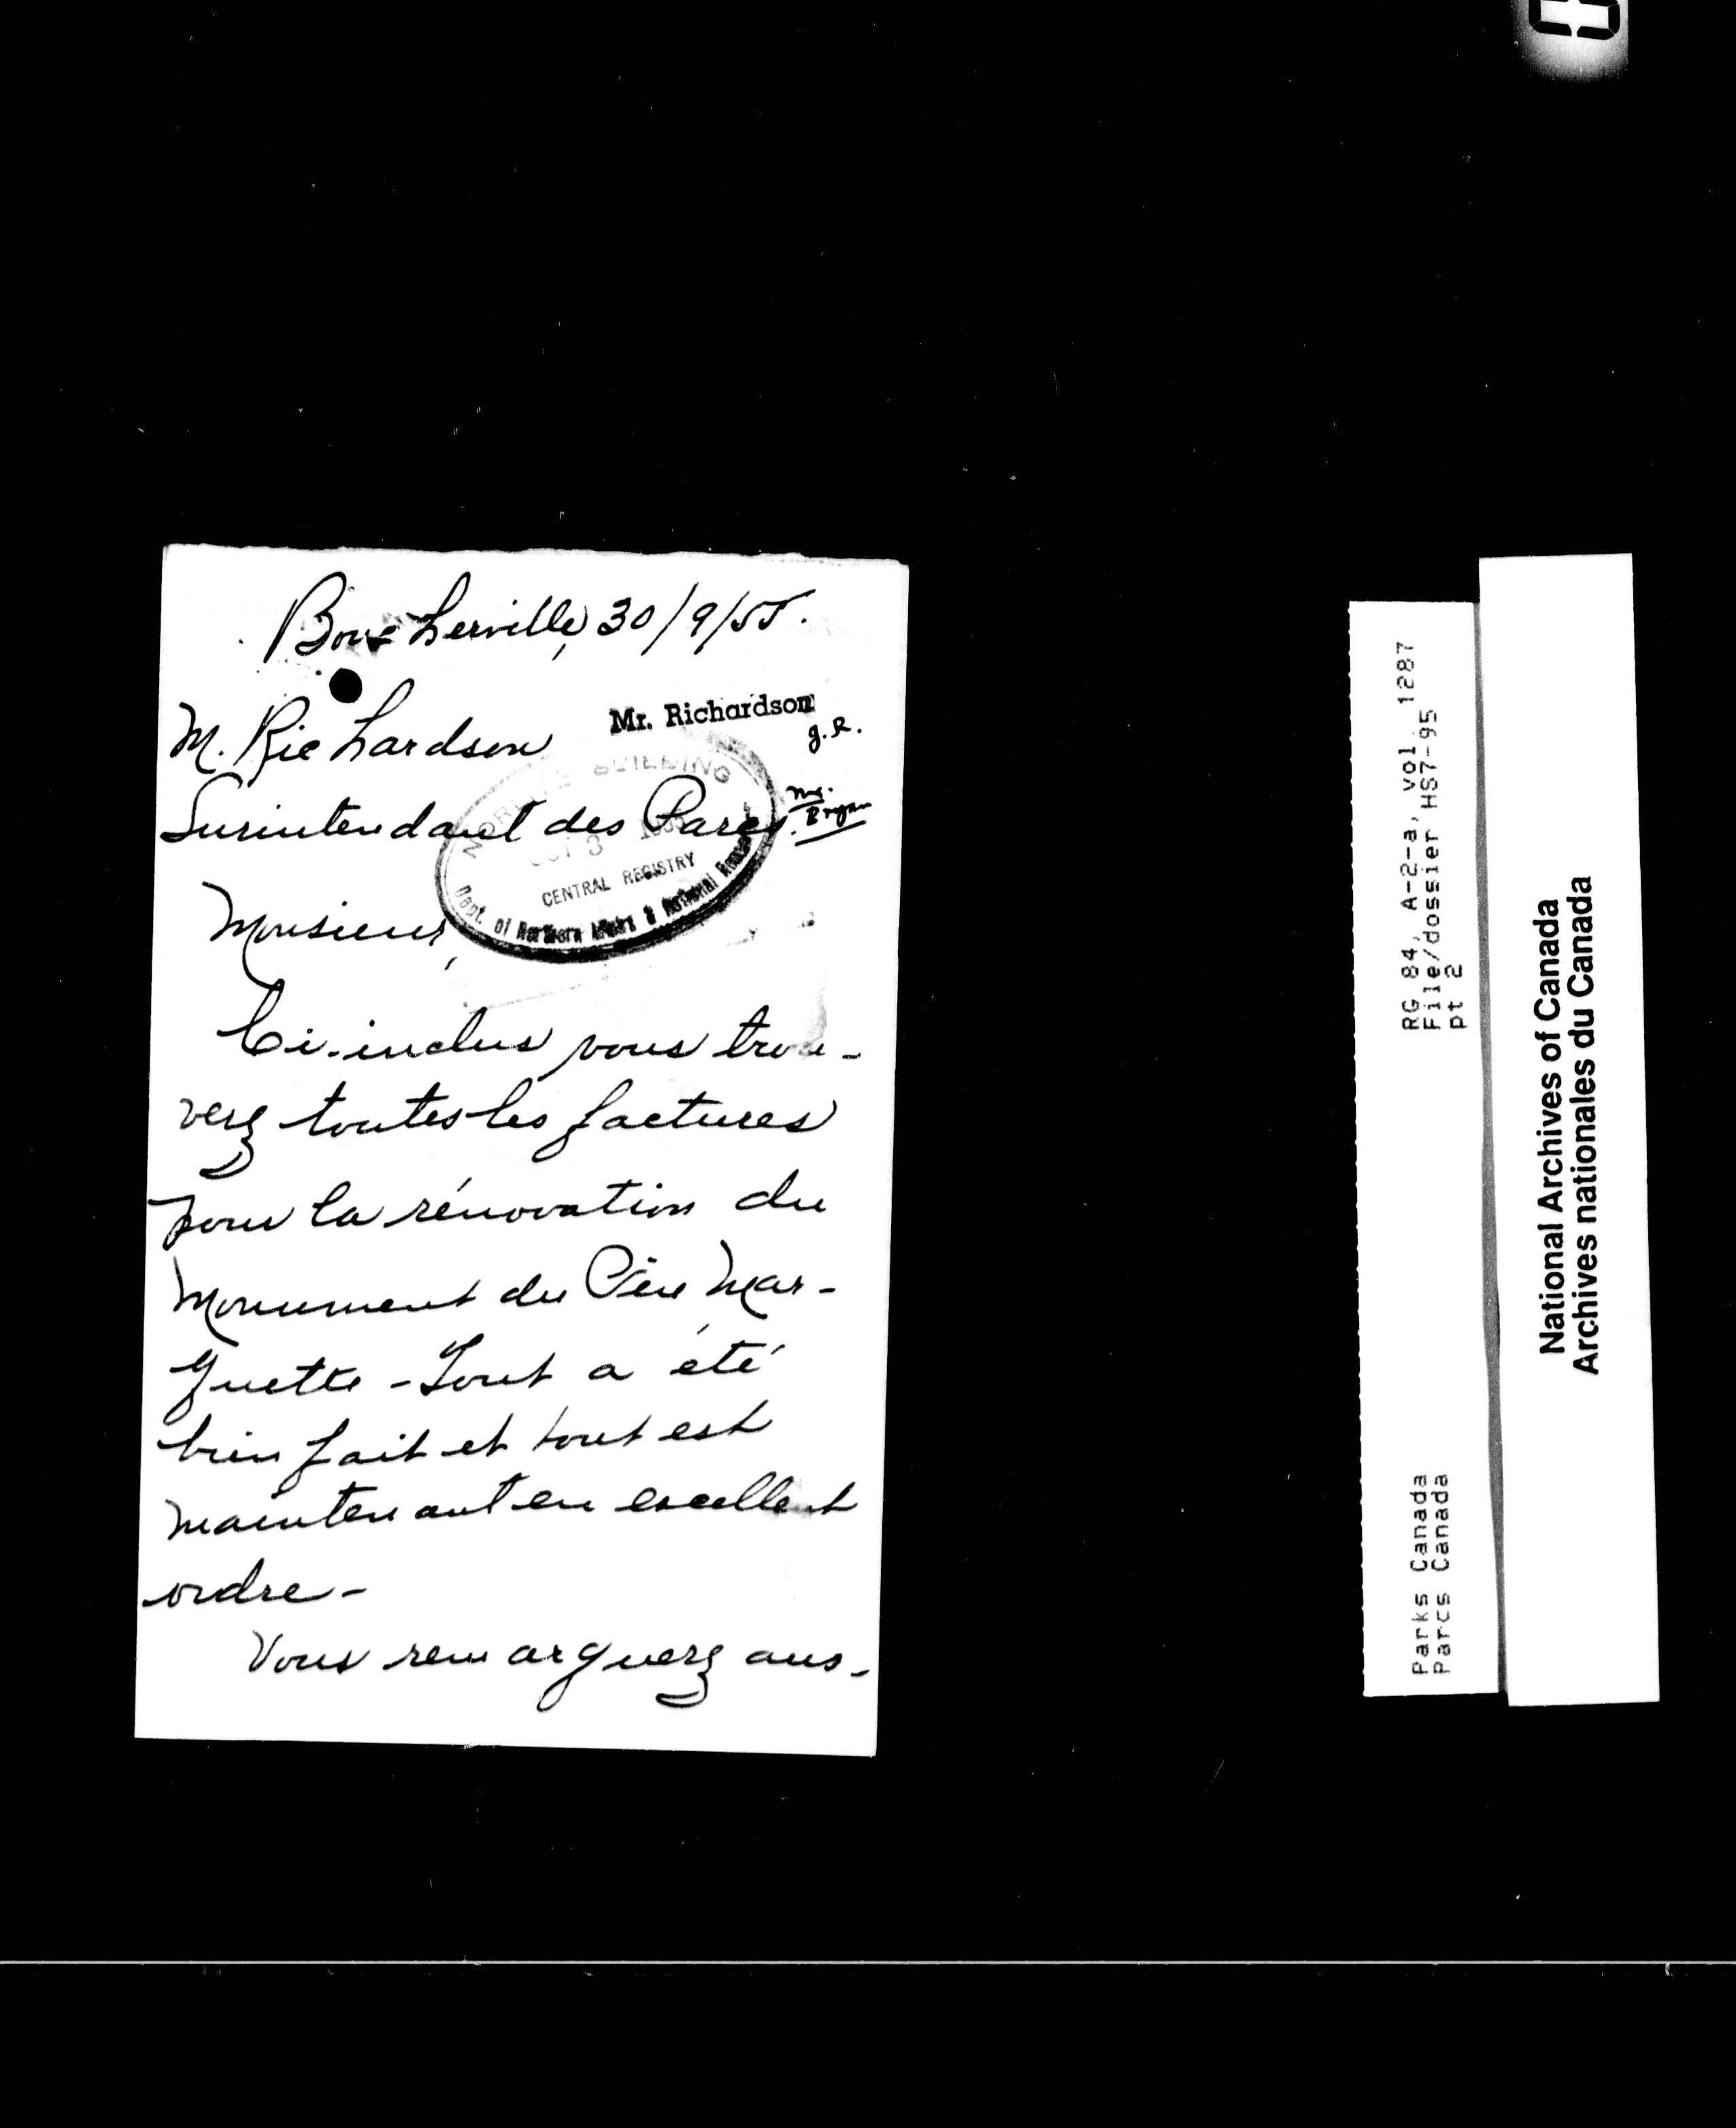 Boucherville, 30/9/55.
Mr. Richardson
g.R.
M. Richardson
Surintendant des Parcs.
Mr.
NORLITE BUILDING
OCT 3 1955
CENTRAL REGISTRY
Dept. of Northern Affairs & National Resources
Monsieur,
Ci-inclus vous trou-
verez toutes les factures
pour la rénovation du
Monument du Père Mar-
quette - Tout a été
bien fait et tout est
maintenant en excellent
ordre -
Vous remarquerez aus-
RG 84, A-2-a, vol. 1287
File/dossier HS7-95
pt 2
Parks Canada
Parcs Canada
National Archives of Canada
Archives nationales du Canada